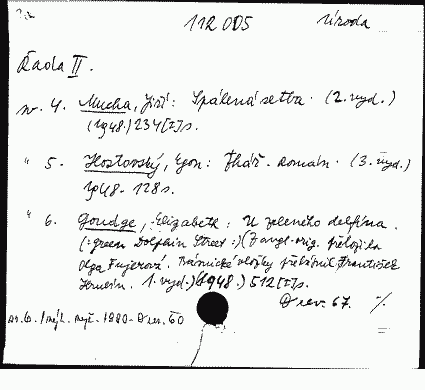 112.005 Úroda
Řada II.
sv. 4. Mucha, Jiří: Spálená setba. (2. vyd.)
(1948.) 234 [I] s.
" 5. Hostovský, Egon: Žhář. Román. (3. vyd.)
1948. 128 s.
" 6. Goudge, Elizabeth: U zeleného delfína.
(:Green Dolphin Street:) (Z angl. orig. přeložila
Olga Fuxerová. Básnické vložky přebásnil František
1. vyd.) (1948.) 512 [I] s.
D rev. 67. %
1980 - D rev. 60